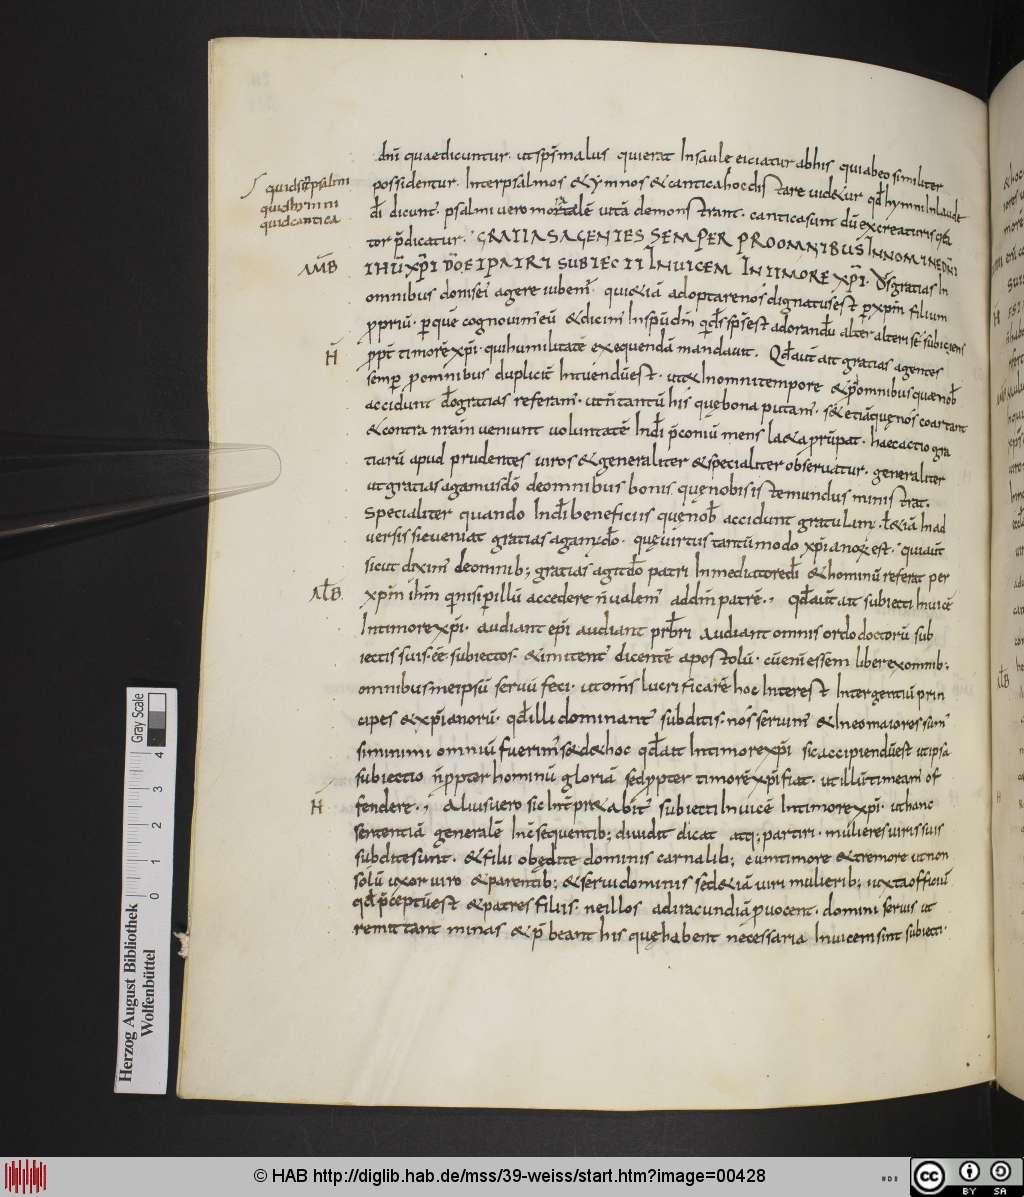 dnī quaedicuntur. utsp̄s malus quierat Insaule eiciatur abhis quiabeo similiter
quids̄t psalmi
quid hymni
quid cantica
possidentur. Interpsalmos &ymnos &canticahocdistare uid&ur qd̄ hymni Inlaude
dī dicunt̄ psalmi uero mortalē uitā demonstrant. canticasunt dū excreaturis
tor p̄dicatur. GRATIAS AGENTES SEMPER PRO OMNIBUS IN NOMINE DNĪ
AMB
IHŪ XPĪ DŌ ET PATRI SUBIECTI INUICEM IN TIMORE XPĪ. gratias In
omnibus agere iuben̄. quia&iā adoptarenos dignatusest p xpm̄ filium
propriū. p quē cognouim̄ eū &dicim̄ Insp̄u qd̄s sp̄s est adorandū alter alteri
H̄
ppt̄ timorē xpī. quihumilitatē exequendā mandauit. Qd̄ aut̄ ait gratias agentes
semp p omnibus duplicit̄ Intuendūest. ut&Inomnitempore &p omnibus quaenob̄
accidunt dōgratias referam̄. utn̄ tantū his quębona putam̄. s& etiā quęnos coartant
&contra nr̄am ueniunt uoluntatē Indī p̄coniū mens la&a prūpat. haecactio gra
tiarū apud prudentes uiros &generaliter &specialiter obseruatur. generaliter
utgratias agamusdō deomnibus bonis quęnobis istemundus ministrat.
specialiter quando Indī beneficiis quęnob̄ accidunt gratulam̄. &iā Inad
uersis sieueniat gratias agam̄dō. quęuirtus tantūmodo xpīanorū est. quiaut̄
sicut dixim̄ deomnib; gratias agitdō patri Inmediatoredī &hominū referat per
ALB
xpm̄ ihm̄ qn̄isi p illū accedere n̄ualem̄ addm̄ patrē., qd̄ aut̄ ait subiecti Inuicē
Intimorexpī. audiant epī audiant prb̄ri audiant omnis ordo doctorū sub
iectis suis. ēē subiectos. &imitent̄ dicentē apostolū. cūem̄ essem liberexomnib;
omnibusmeipsū seruū feci. utom̄s lucrificarē hoc Interest Intergentiū prin
cipes &xpīanorū. qd̄ illi dominant̄ subditis. nos seruim̄ &Ineomaiores sum̄
siminimi omniū fuerim̄ sed&hoc qd̄ ait Intimorexpī sicaccipiendūest utipsa
subiectio n̄ppter hominū gloriā sedppter timorē xpī fiat. utillū timeam̄ of
H̄
fendere., Aliusuero sic Int̄pr&abit̄ subiecti Inuicē Intimorexpī. uthanc
sententiā generalē Inc̄sequentib; diuidit dicat atq; partiri. mulieres uirissuis
subditesunt. &filii obędite dominis carnalib; cumtimore &tremore utnon
solū uxor uiro &parentib; &seruidominis sed&iā uiri mulierib; iuxtaofficiū
qd̄ p̄ceptūest &patres filiis. neillos adiracundiā puocent. domini seruis ut
remittant minas &p̄beant his quęhabent necessaria Inuicemsint subiecti.
Herzog August Bibliothek
Wolfenbüttel
Gray Scale
0 1 2 3 4
© HAB http://diglib.hab.de/mss/39-weiss/start.htm?image=00428
cc BY SA